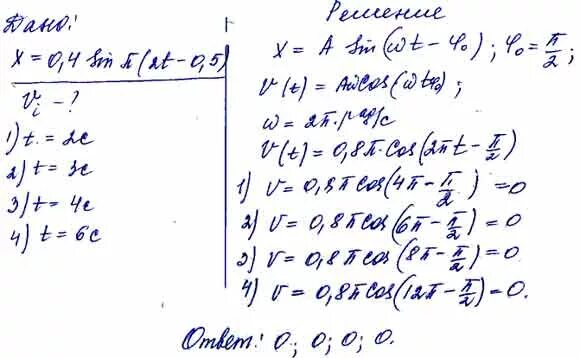 Дано:
x = 0,4 sin π(2t − 0,5)
v_i − ?
1) t = 2с
2) t = 3с
3) t = 4с
4) t = 6с
Решение
x = A sin(ωt − φ₀) ; φ₀ = π/2 ;
v(t) = Aω cos(ωtφ₀) ;
ω = 2π рад/с
v(t) = 0,8π · cos(2πt − π/2)
1) v = 0,8π cos(4π − π/2) = 0
2) v = 0,8π cos(6π − π/2) = 0
3) v = 0,8π cos(8π − π/2) = 0
4) v = 0,8π cos(12π − π/2) = 0.
Ответ: 0; 0; 0; 0.